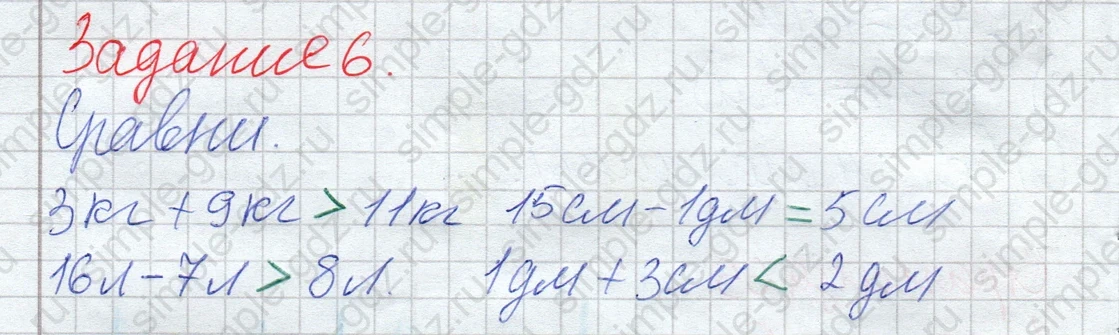 Задание 6.
Сравни.
3кг + 9кг > 11кг 15см - 1дм = 5см
16л - 7л > 8л. 1дм + 3см < 2дм
simple-gdz.ru